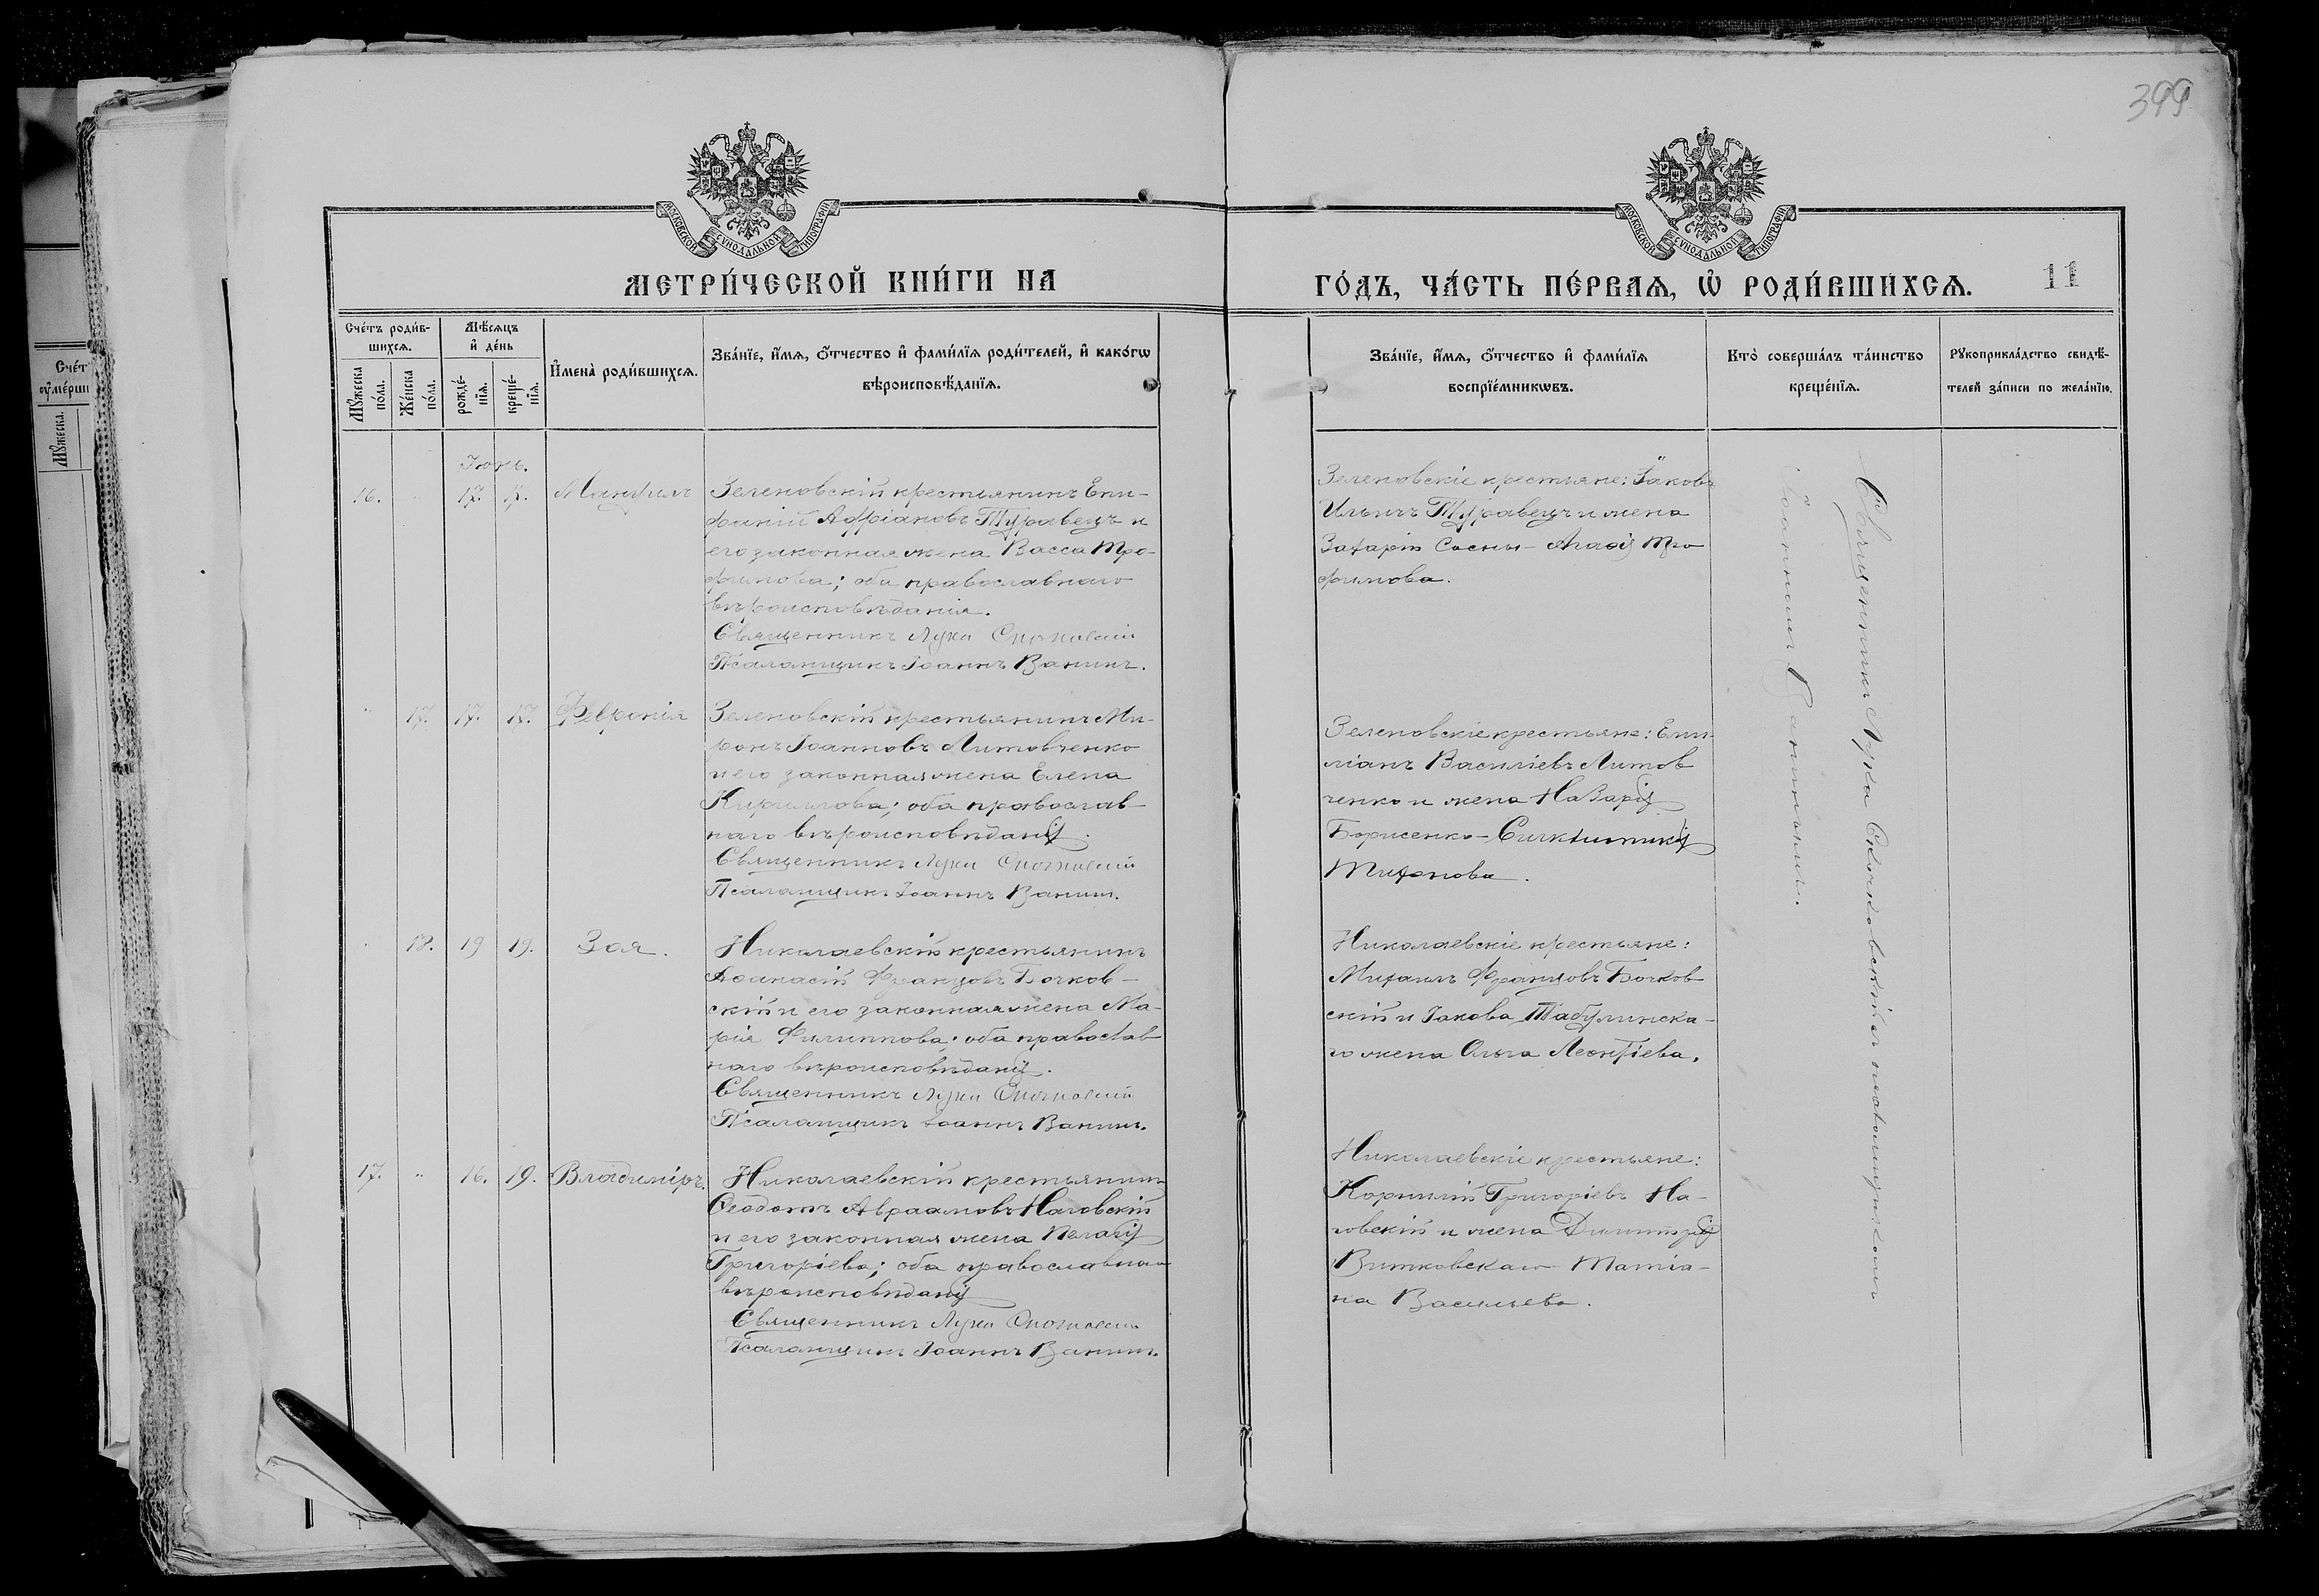 399
МОСКОВСКОЙ СѴНОДАЛЬНОЙ ТИПОГРАФІИ
МОСКОВСКОЙ СѴНОДАЛЬНОЙ ТИПОГРАФІИ
МЕТРИ́ЧЕСКОЙ КНИ́ГИ НА
ГО́ДЪ, ЧА́СТЬ ПЕ́РВАѦ, Ѽ РОДИ́ВШИХСѦ.
11
Сче́тъ роди́в-
шихсѧ.
Мѣ́сѧцъ
и҆ де́нь
Мꙋ́жеска
по́ла.
Же́нска
по́ла.
рожде́-
нїѧ.
креще́-
нїѧ.
И҆мена̀ роди́вшихсѧ.
Зва́нїе, и҆́мѧ, ѻ҆́тчество и҆ фами́лїѧ роди́телей, и҆ како́гѡ
вѣроисповѣ́данїѧ.
Зва́нїе, и҆́мѧ, ѻ҆́тчество и҆ фами́лїѧ
воспрїе́мникѡвъ.
Кто̀ соверша́лъ та́инство
креще́нїѧ.
Рꙋкоприкла́дство свидѣ́-
телей за́писи по жела́нїю.
Сче́т
ᲂу҆ме́рши
Мꙋ́жеска.
Іюнь.
16. " 17. 17. Мануилъ
Зеленовскій крестьянинъ Епи-
фаній Адріановъ Журавецъ и
его законная жена Васса Тро-
фимова; оба православнаго
вѣроисповѣданія.
Священникъ Лука
Псаломщикъ Іоаннъ Ванинъ.
Зеленовскіе крестьяне: Іаковъ
Ильичъ Журавецъ и жена
Захарія Сосны - Агафія Тро
фимова.
" 17. 17. 17. Февронія
Зеленовскій крестьянинъ Ми-
ронъ Іоанновъ Литовченко
и его законная жена Елена
Кириллова; оба православ-
наго вѣроисповѣданія.
Священникъ Лука
Псаломщикъ Іоаннъ Ванинъ.
Зеленовскіе крестьяне: Еми-
ліанъ Василіевъ Литов
ченко и жена Назарія
Борисенко - Синклитикія
Тихонова.
" 18. 19 19. Зоя.
Николаевскій крестьянинъ
Аѳанасій Францовъ Бочков-
скій и его законная жена Ма-
рія Филиппова; оба православ
наго вѣроисповѣданія.
Священникъ Лука
Псаломщикъ Іоаннъ Ванинъ.
Николаевскіе крестьяне:
Михаилъ Францовъ Бочков
скій и Іакова Табулинска-
го жена Ольга Леонтіева.
17. " 16. 19. Владиміръ.
Николаевскій крестьянинъ
Ѳеодотъ Авраамовъ Наговскій
и его законная жена Пелагія
Григоріева; оба православнаго
вѣроисповѣданія
Священникъ Лука
Псаломщикъ Іоаннъ Ванинъ.
Николаевскіе крестьяне:
Корнилій Григоріевъ На-
говскій и жена Димитрія
Витковскаго Татіа-
на Васильева.
Священникъ Лука съ псаломщикомъ
Іоанномъ Ванинымъ.